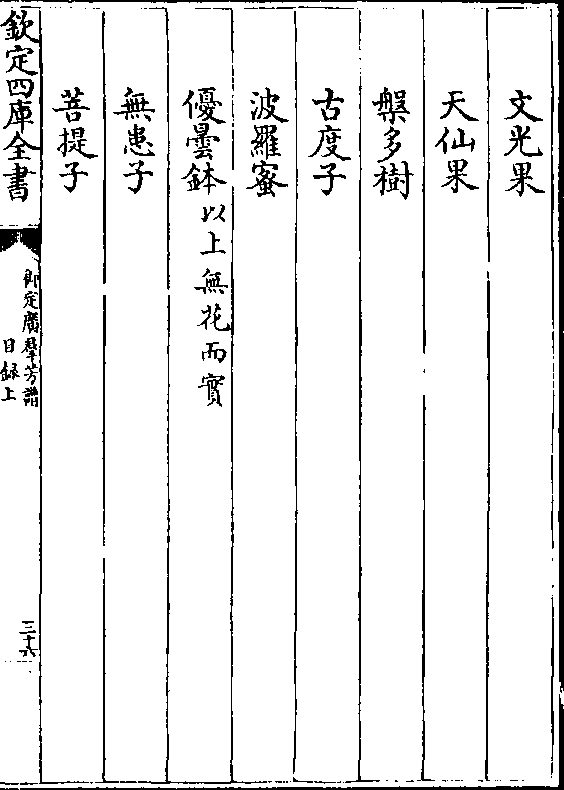 文光果
天仙果
槃多樹
古度子
波羅蜜
優曇鉢以上無花而實
無患子
菩提子
欽定四庫全書
御定廣羣芳譜
目録上
三十六